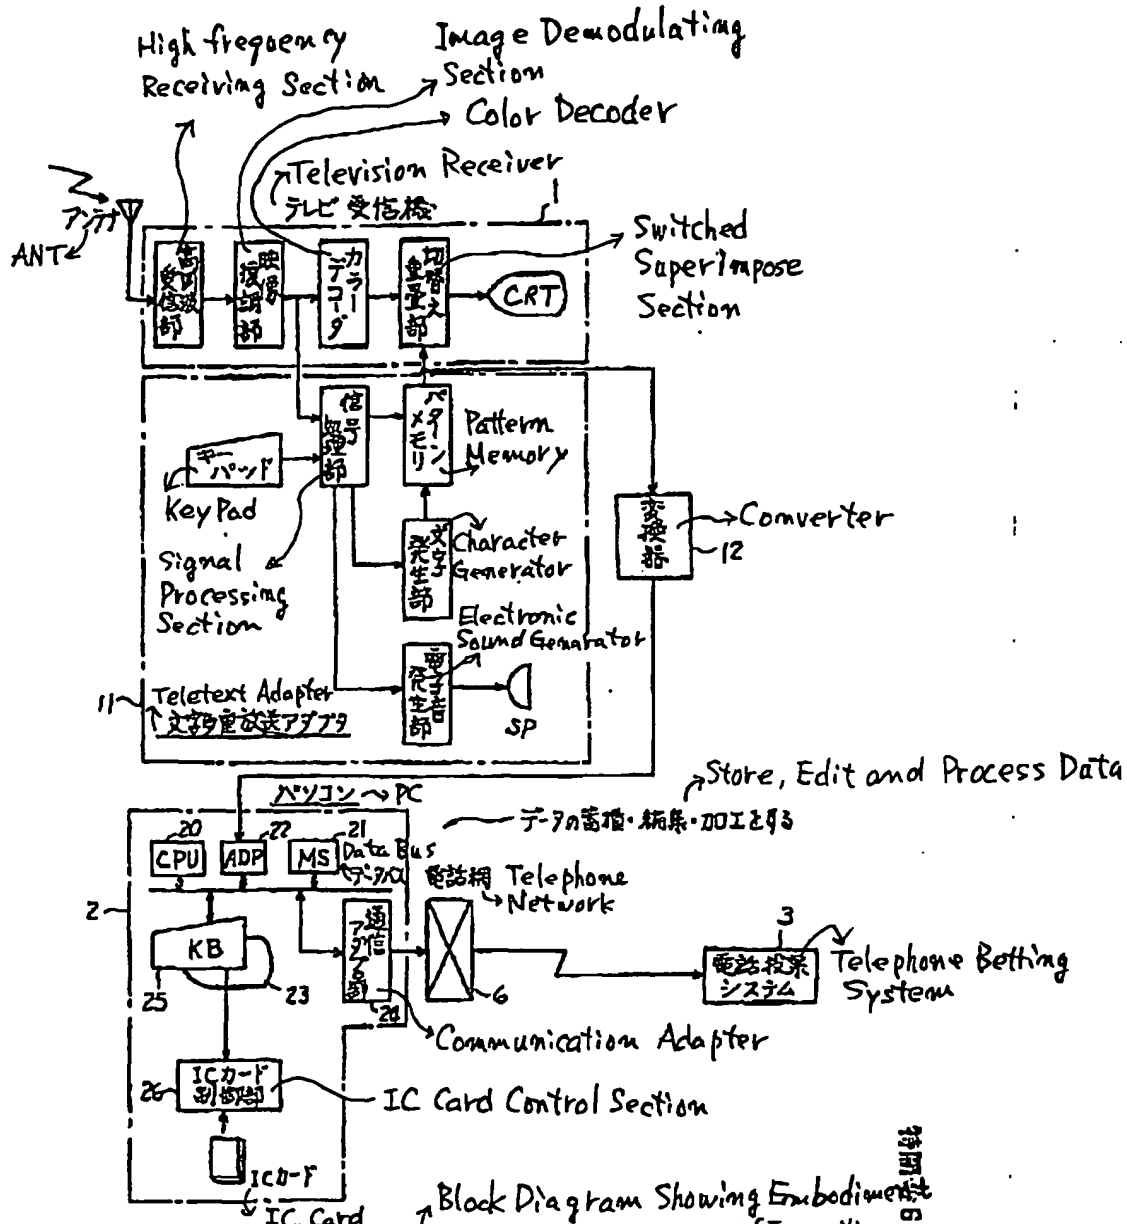 High frequency
Receiving Section
Image Demodulating
Section
Color Decoder
Television Receiver
テレビ受信機
1
アンテナ
ANT
高周波
受信部
映像
復調部
カラー
デコーダ
切替え
重畳部
CRT
Switched
Superimpose
Section
信号
処理部
パターン
メモリ
Pattern
Memory
キー
パッド
Key Pad
Signal
Processing
Section
文字
発生部
Character
Generator
変換器
Converter
12
Electronic
Sound Genarator
電子音
発生部
SP
11
Teletext Adapter
文字多重放送アダプタ
Store, Edit and Process Data
パソコン
PC
データの蓄積・編集・加工をする
20
22
21
CPU
ADP
MS
Data Bus
データバス
電話網
Telephone
Network
2
KB
通信
アダプタ部
3
電話投票
システム
Telephone Betting
System
25
23
24
6
Communication Adapter
26
ICカード
制御部
IC Card Control Section
ICカード
IC Card
Block Diagram Showing Embodiment